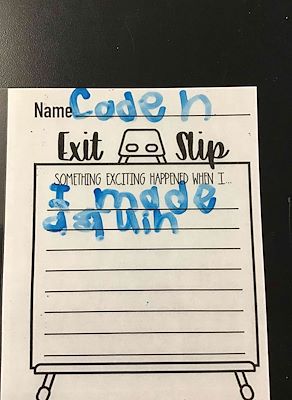 Name Caden
Exit Slip
SOMETHING EXCITING HAPPENED WHEN I...
I made
a